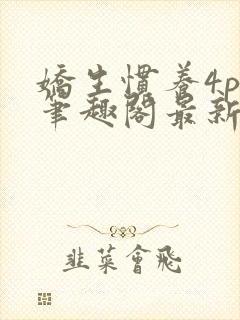 嬌生慣養4p
筆趣閣最新
韭菜會飛